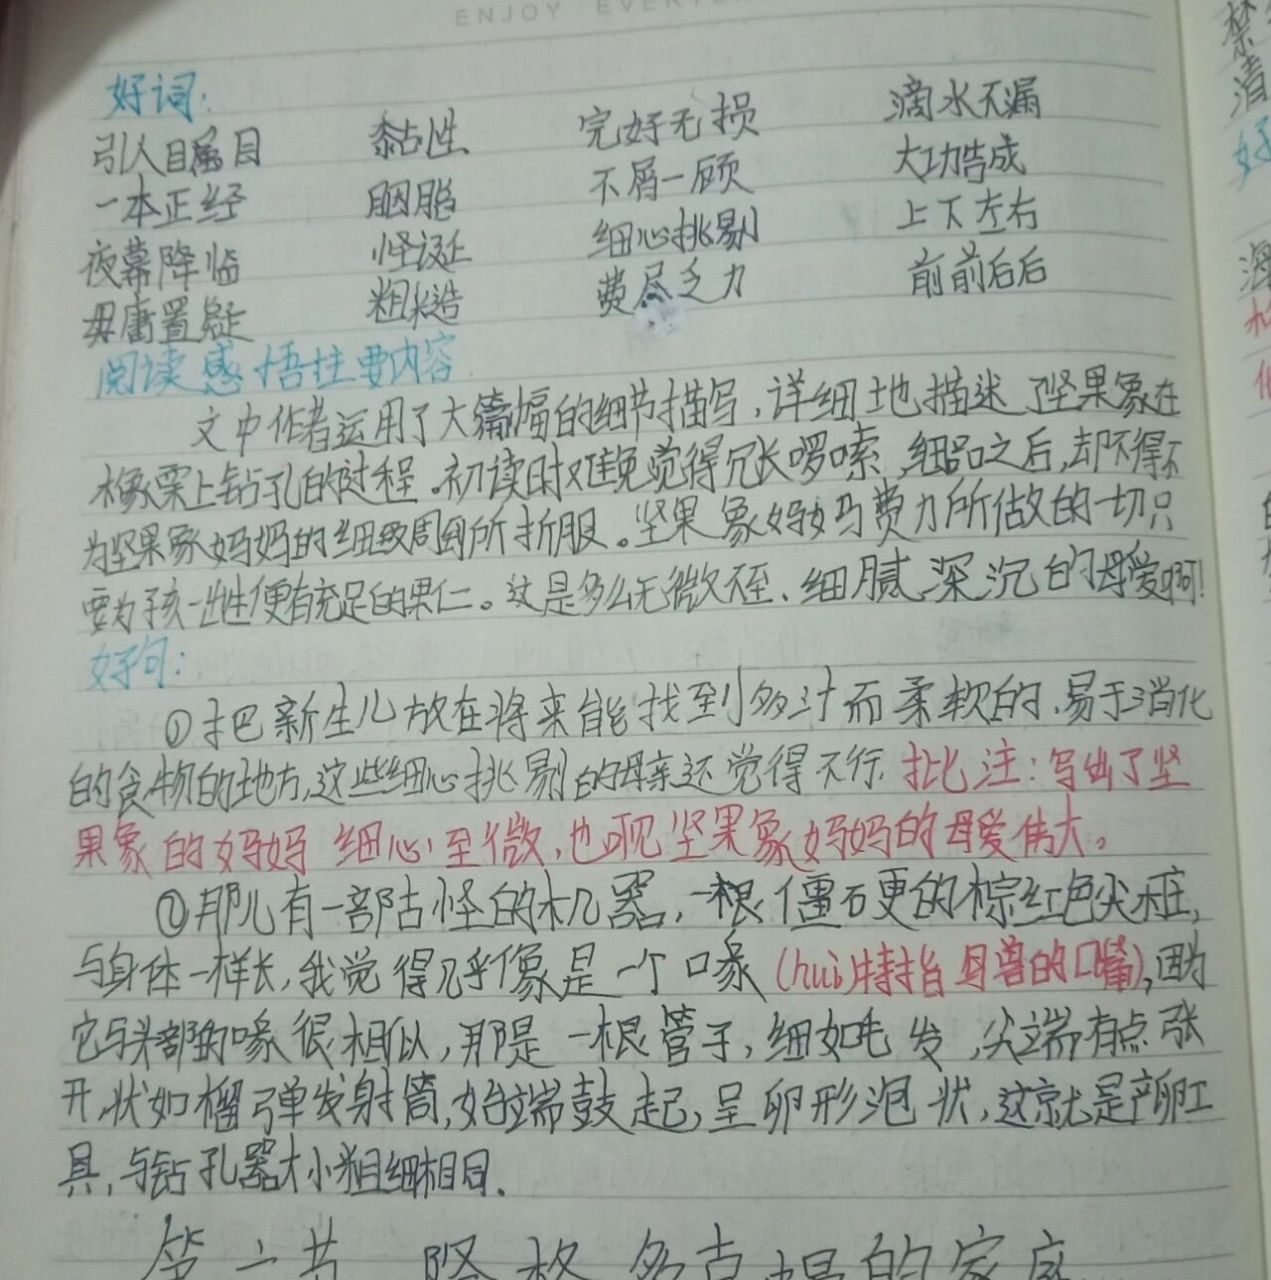 ENJOY EVERY
好词:
引人瞩目 黏性 完好无损 滴水不漏
一本正经 胭脂 不屑一顾 大功告成
夜幕降临 怪诞 细心挑剔 上下左右
毋庸置疑 粗糙 费尽乏力 前前后后
阅读感悟挂要内容
文中作者运用了大篇幅的细节描写,详细地描述了坚果象在
橡栗上钻孔的过程。初读时难免觉得冗长啰嗦,细品之后,却不得不
为坚果象妈妈的细致周到所折服。坚果象妈妈费力所做的一切只
要为孩一出生便有充足的果仁。这是多么无微不至、细腻深沉的母爱啊!
好句:
①把新生儿放在将来能找到多汁而柔软的、易于消化
的食物的地方,这些细心挑剔的母亲还觉得不行.批注:写出了坚
果象的妈妈细心至微,也呪坚果象妈妈的母爱伟大。
②那儿有一部古怪的机器,一根僵石更的棕红色尖桩,
与身体一样长,我觉得几乎像是一个喙(hui)特指母兽的口嘴),因为
它与头部的喙很相似,那是一根管子,细如毛发,尖端有点张
开,状如榴弹发射筒,始端鼓起,呈卵形泡状,这就是产卵工
具,与钻孔器大小粗细相同.
的家庭
禁
清
好
海